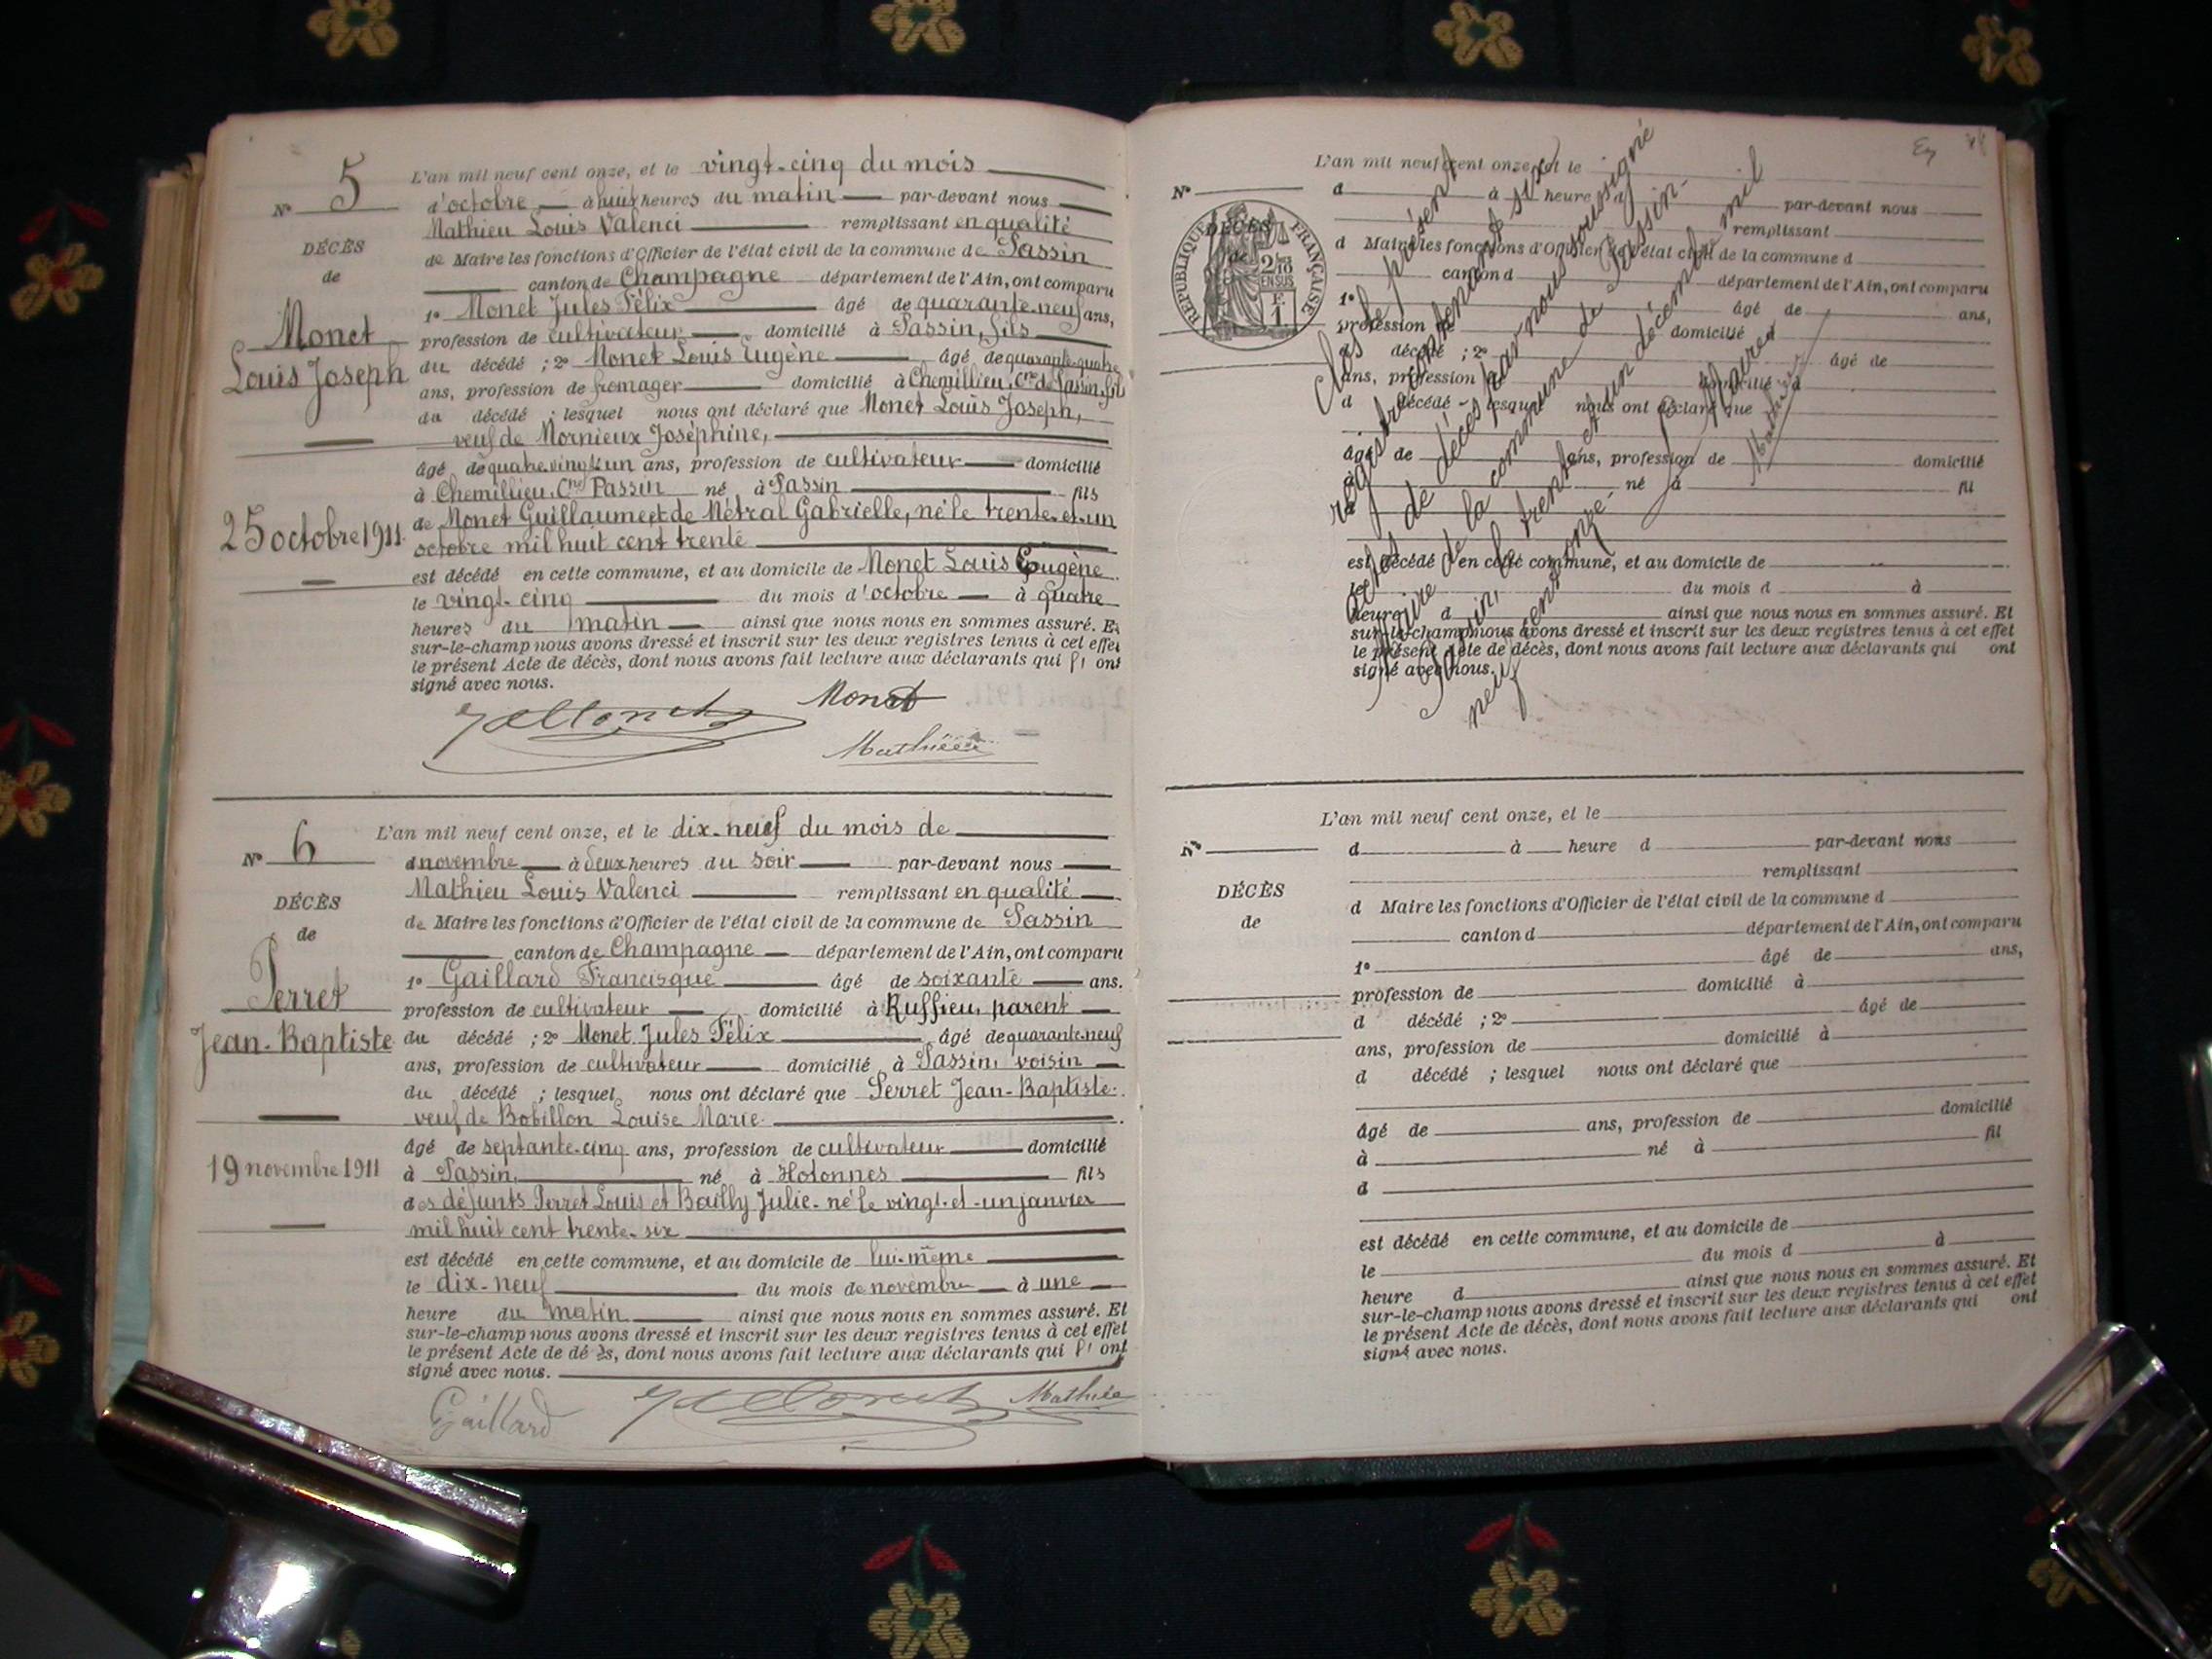 N° 5
DÉCÈS
de
Monet
Louis Joseph
25 octobre 1911
L'an mil neuf cent onze, et le vingt-cinq du mois
d'octobre à huit heures du matin par-devant nous
Mathieu Louis Valenci remplissant en qualité
de Maire les fonctions d'Officier de l'état civil de la commune de Passin
canton de Champagne département de l'Ain, ont comparu
1° Monet Jules Félix âgé de quarante-neuf ans,
profession de cultivateur domicilié à Passin, fils
du décédé ; 2° Monet Louis Eugène âgé de quarante-quatre
ans, profession de fromager domicilié à Chemillieu, Cne de Passin, fils
du décédé ; lesquel nous ont déclaré que Monet Louis Joseph,
veuf de Mornieux Joséphine,
âgé de quatre vingt un ans, profession de cultivateur domicilié
à Chemillieu, Cne Passin né à Passin fils
de Monet Guillaume et de Métral Gabrielle, né le trente-et-un
octobre mil huit cent trente
est décédé en cette commune, et au domicile de Monet Louis Eugène
le vingt-cinq du mois d'octobre à quatre
heures du matin ainsi que nous nous en sommes assuré. Et
sur-le-champ nous avons dressé et inscrit sur les deux registres tenus à cet effet
le présent Acte de décès, dont nous avons fait lecture aux déclarants qui l' ont
signé avec nous.
Monet
Mathieu
N° 6
DÉCÈS
de
Perret
Jean-Baptiste
19 novembre 1911
L'an mil neuf cent onze, et le dix-neuf du mois de
novembre à deux heures du soir par-devant nous
Mathieu Louis Valenci remplissant en qualité
de Maire les fonctions d'Officier de l'état civil de la commune de Passin
canton de Champagne département de l'Ain, ont comparu
1° Gaillard Francisque âgé de soixante ans.
profession de cultivateur domicilié à Ruffieu, parent
du décédé ; 2° Monet Jules Félix âgé de quarante-neuf
ans, profession de cultivateur domicilié à Passin, voisin
du décédé ; lesquel nous ont déclaré que Perret Jean-Baptiste.
veuf de Bobillon Louise Marie.
âgé de septante-cinq ans, profession de cultivateur domicilié
à Passin, né à Hotonnes fils
des défunts Perret Louis et Bailly Julie. né le vingt-et-un janvier
mil huit cent trente-six
est décédé en cette commune, et au domicile de lui-même
le dix-neuf du mois de novembre à une
heure du matin ainsi que nous nous en sommes assuré. Et
sur-le-champ nous avons dressé et inscrit sur les deux registres tenus à cet effet
le présent Acte de dé ès, dont nous avons fait lecture aux déclarants qui l' ont
signé avec nous.
Gaillard
Mathieu
N°
DÉCÈS
de
RÉPUBLIQUE FRANÇAISE
2/10
EN SUS
F.
1
L'an mil neuf cent onze, et le
d à heure d par-devant nous
remplissant
d Maire les fonctions d'Officier de l'état civil de la commune d
canton d département de l'Ain, ont comparu
1° âgé de ans,
profession de domicilié à
d décédé ; 2° âgé de
ans, profession de domicilié à
d décédé ; lesquel nous ont déclaré que
âgé de ans, profession de domicilié
à né à fil
est décédé en cette commune, et au domicile de
le du mois d à
heure d ainsi que nous nous en sommes assuré. Et
sur-le-champ nous avons dressé et inscrit sur les deux registres tenus à cet effet
le présent Acte de décès, dont nous avons fait lecture aux déclarants qui ont
signé avec nous.
Clos le présent
registre contenant six
actes de décès par nous soussigné
maire de la commune de Passin.
Passin, le trente et un décembre mil
neuf cent onze.
Le Maire,
Mathieu
N°
DÉCÈS
de
L'an mil neuf cent onze, et le
d à heure d par-devant nous
remplissant
d Maire les fonctions d'Officier de l'état civil de la commune d
canton d département de l'Ain, ont comparu
1° âgé de ans,
profession de domicilié à
d décédé ; 2° âgé de
ans, profession de domicilié à
d décédé ; lesquel nous ont déclaré que
âgé de ans, profession de domicilié
à né à fil
d
est décédé en cette commune, et au domicile de
le du mois d à
heure d ainsi que nous nous en sommes assuré. Et
sur-le-champ nous avons dressé et inscrit sur les deux registres tenus à cet effet
le présent Acte de décès, dont nous avons fait lecture aux déclarants qui ont
signé avec nous.